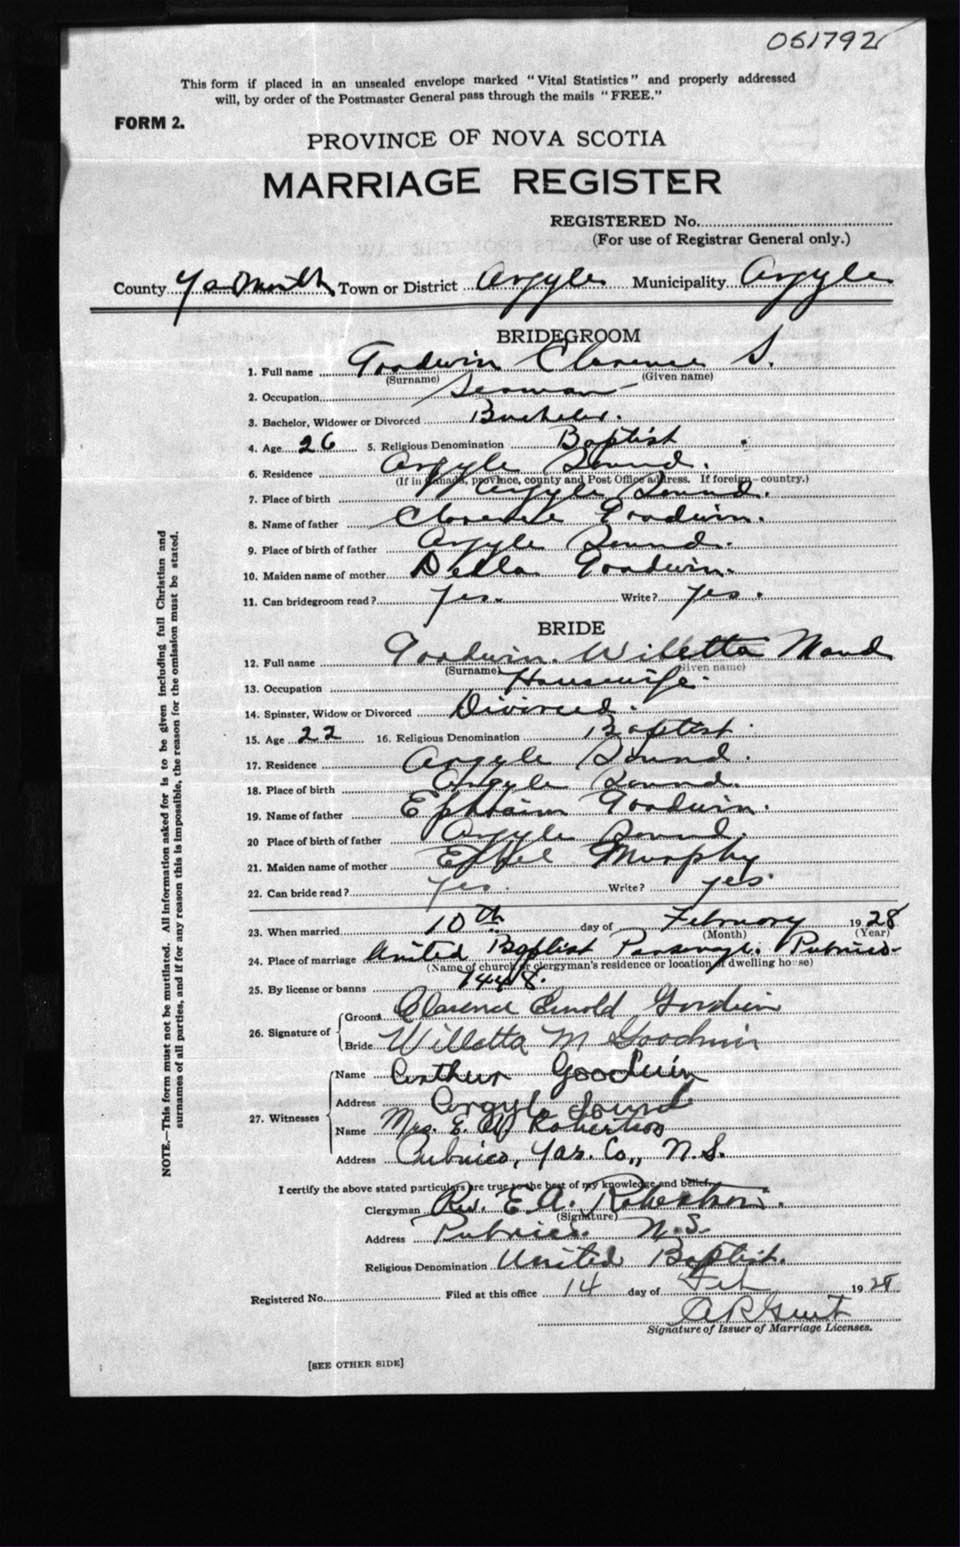 061792
This form if placed in an unsealed envelope marked "Vital Statistics" and properly addressed
will, by order of the Postmaster General pass through the mails "FREE."
FORM 2.
PROVINCE OF NOVA SCOTIA
MARRIAGE REGISTER
REGISTERED No.
(For use of Registrar General only.)
County Yarmouth Town or District Argyle Municipality Argyle
BRIDEGROOM
1. Full name Goodwin Clarence S.
(Surname) (Given name)
2. Occupation Seaman
3. Bachelor, Widower or Divorced Bachelor.
4. Age 26 5. Religious Denomination Baptist
6. Residence Argyle Sound.
(If in Canada, province, county and Post Office address. If foreign—country.)
7. Place of birth Argyle Sound.
8. Name of father Clarence Goodwin.
9. Place of birth of father Argyle Sound.
10. Maiden name of mother Della Goodwin.
11. Can bridegroom read? Yes. Write? Yes.
BRIDE
12. Full name Goodwin. Willetta Maud
(Surname) (Given name)
13. Occupation Housewife.
14. Spinster, Widow or Divorced Divorced.
15. Age 22 16. Religious Denomination Baptist.
17. Residence Argyle Sound.
18. Place of birth Argyle Sound.
19. Name of father Ephraim Goodwin.
20 Place of birth of father Argyle Sound.
21. Maiden name of mother Ethel Murphy
22. Can bride read? Yes. Write? yes.
23. When married 10th day of February 1928
(Month) (Year)
24. Place of marriage United Baptist Parsonage. Pubnico.
(Name of church or clergyman's residence or location of dwelling house)
25. By license or banns
26. Signature of Groom Clarence Goodwin
Bride Willetta M Goodwin
27. Witnesses Name Arthur Goodwin
Address Argyle Sound
Name Mrs. E. A. Robertson
Address Pubnico, Yar. Co., N.S.
I certify the above stated particulars are true to the best of my knowledge and belief.
Clergyman Rev. E. A. Robertson.
(Signature)
Address Pubnico. N.S.
Religious Denomination United Baptist.
Registered No. Filed at this office 14 day of Feb 1928
Signature of Issuer of Marriage Licenses.
[SEE OTHER SIDE]
NOTE.—This form must not be mutilated. All information asked for is to be given including full Christian and
surnames of all parties, and if for any reason this is impossible, the reason for the omission must be stated.